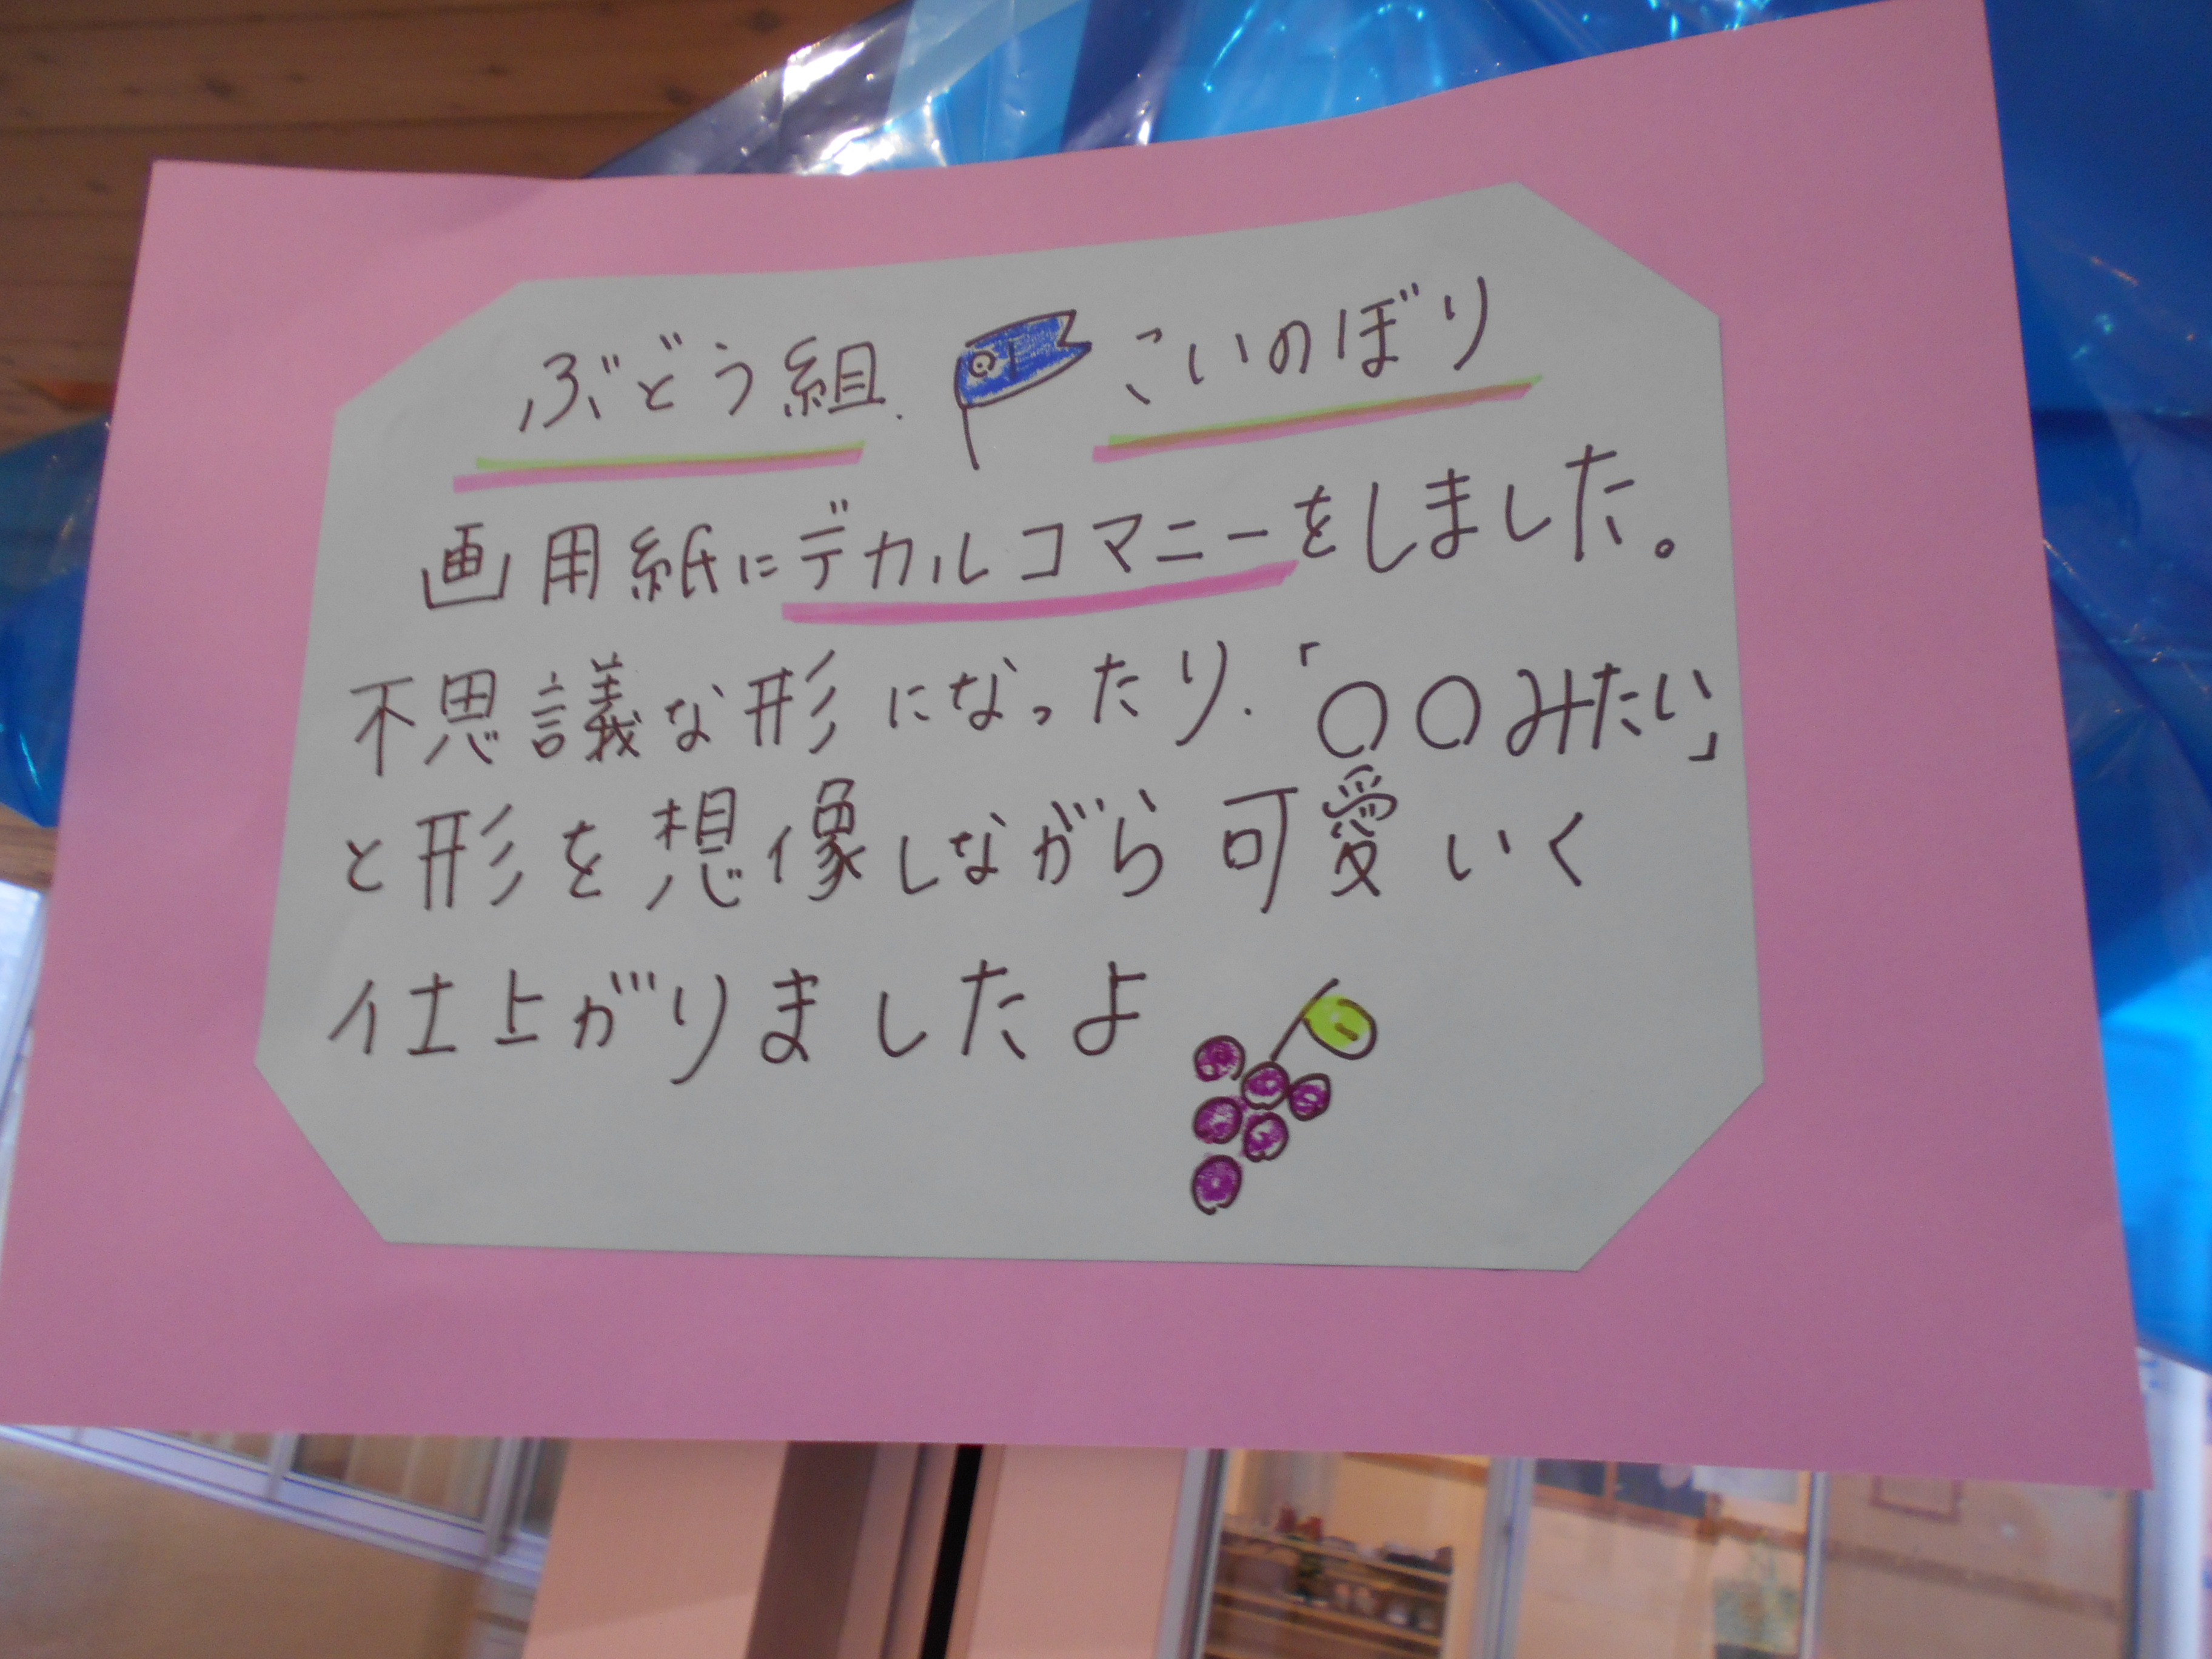 ぶどう組 こいのぼり
画用紙にデカルコマニーをしました。
不思議な形になったり、「〇〇みたい」
と形を想像しながら可愛いく
仕上がりましたよ